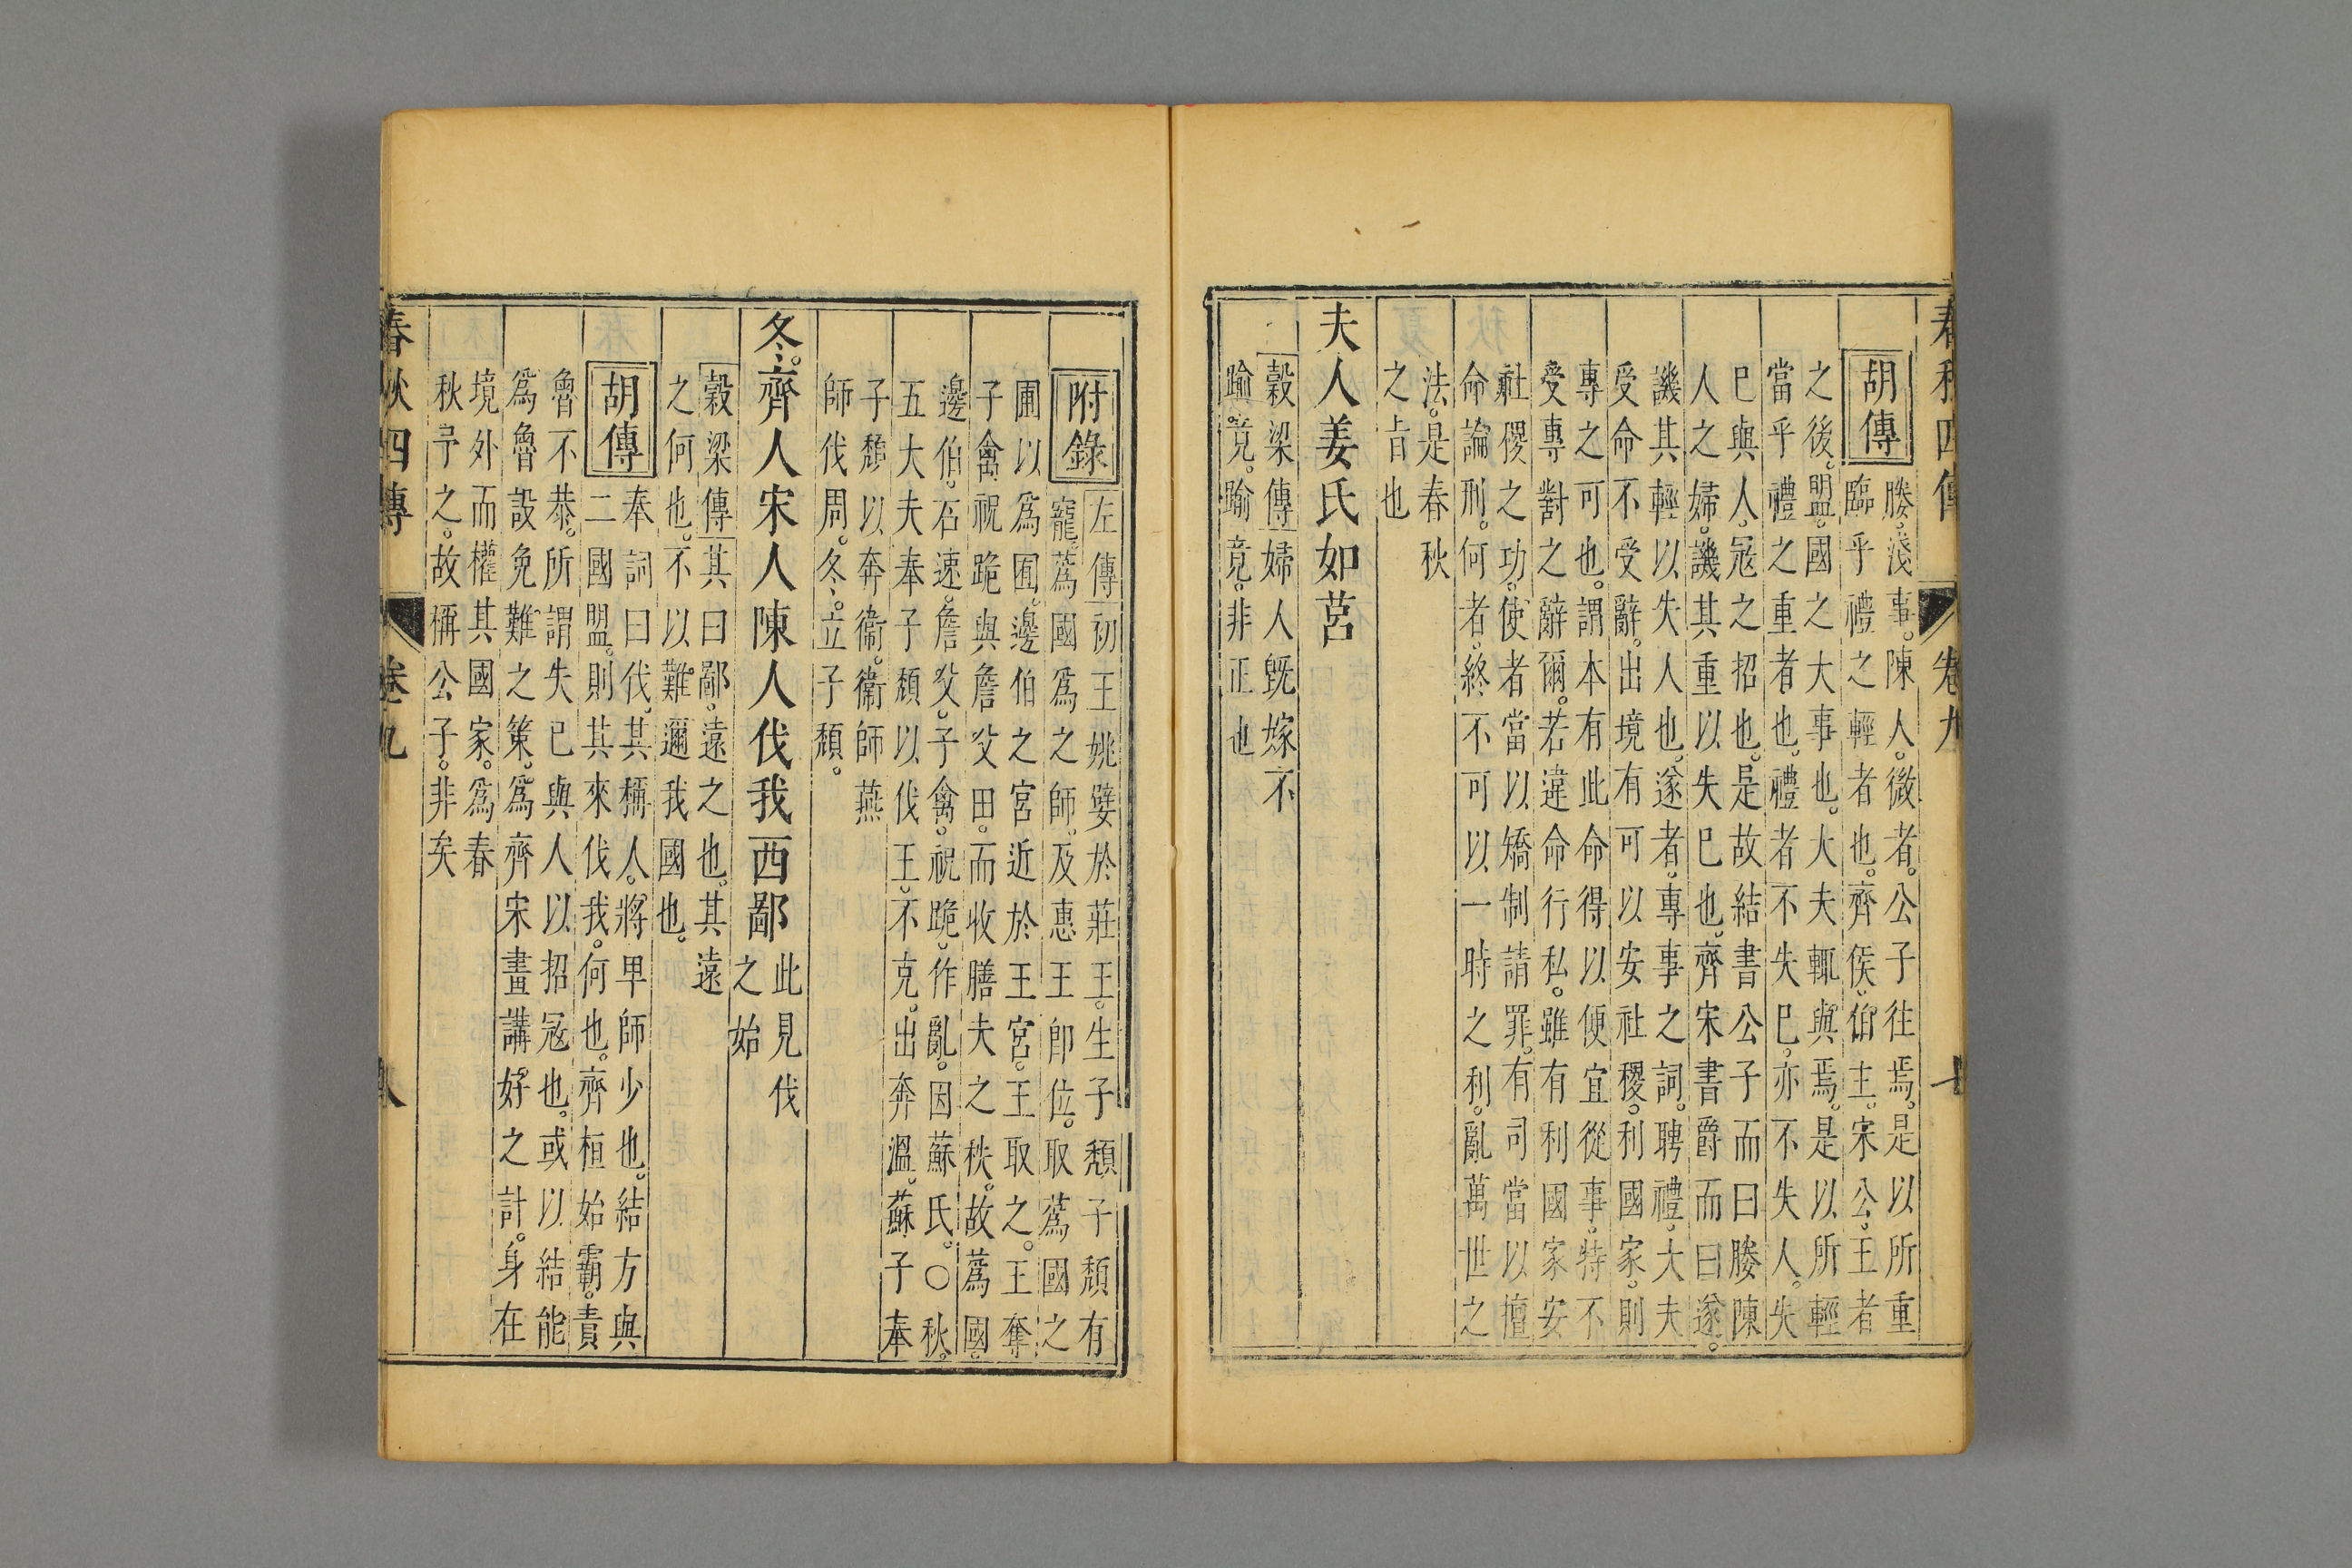 春秋四傳 卷九 七
胡傳
媵。淺事。陳人。微者。公子往焉。是以所重
臨乎禮之輕者也。齊侯。伯主。宋公。王者
之後。盟。國之大事也。大夫輒與焉。是以所輕
當乎禮之重者也。禮者不失巳。亦不失人。失
巳與人。冦之招也。是故結書公子而曰媵陳
人之婦。譏其重以失巳也。齊宋書爵而曰遂。
譏其輕以失人也。遂者。專事之詞。聘禮。大夫
受命不受辭。出境有可以安社稷。利國家。則
專之可也。謂本有此命得以便宜從事。特不
受專對之辭爾。若違命行私。雖有利國家安
社稷之功。使者當以矯制請罪。有司當以擅
命論刑。何者。終不可以一時之利。亂萬世之
法。是春秋
之旨也
夫人姜氏如莒
穀梁傳婦人旣嫁不
踰竟。踰竟。非正也
附錄
左傳初王姚嬖於莊王。生子頹子頹有
寵。蒍國爲之師。及惠王卽位。取蒍國之
圃以爲囿。邊伯之宮近於王宮。王取之。王奪
子禽祝跪與詹父田。而收膳夫之秩。故蒍國。
邊伯。石速。詹父。子禽。祝跪。作亂。因蘇氏。○秋。
五大夫奉子頹以伐王。不克。出奔溫。蘇子奉
子頹以奔衞。衞師燕
師伐周。冬。立子頹。
冬。齊人宋人陳人伐我西鄙
此見伐
之始
穀梁傳其曰鄙。遠之也。其遠
之何也。不以難邇我國也。
胡傳
奉詞曰伐。其稱人。將卑師少也。結方與
二國盟。則其來伐我。何也。齊桓始霸。責
魯不恭。所謂失巳與人以招冦也。或以結能
爲魯設免難之策。爲齊宋畫講好之計。身在
境外而權其國家。爲春
秋予之。故稱公子。非矣
春秋四傳 卷九 八